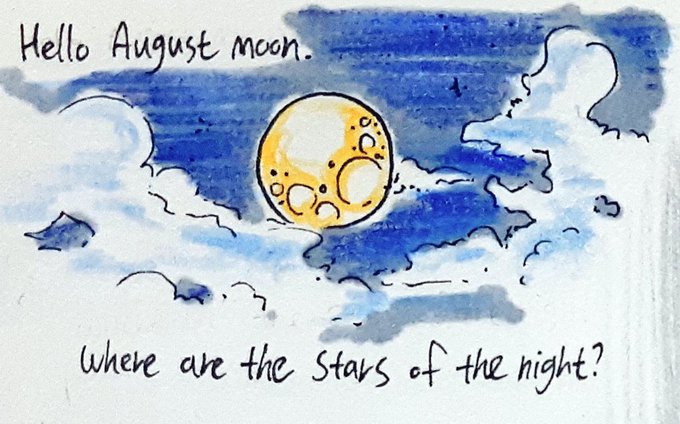 Hello August moon.
Where are the stars of the night?